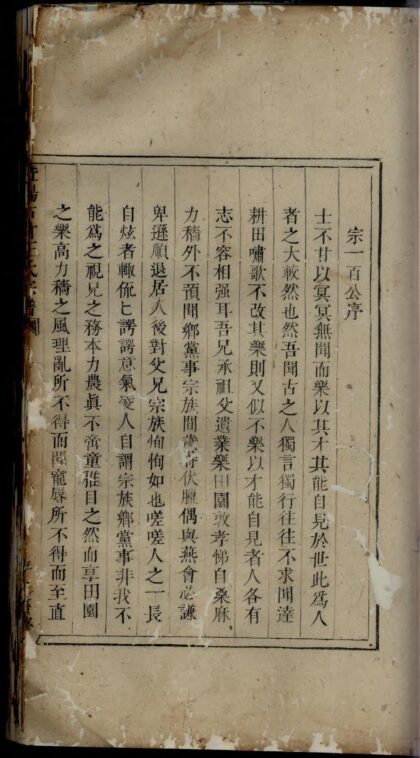 宗一百公序
士不甘以冥冥無聞而樂以其才其能自見於世此爲人
者之大較然也然吾聞古之人獨言獨行往往不求聞達
耕田嘯歌不改其樂則又似不樂以才能自見者人各有
志不容相强耳吾兄承祖父遺業樂田園敦孝悌自桑麻
力穡外不預聞鄉黨事宗族間歲時伏臘偶與燕會必謙
卑遜順退居人後對父兄宗族恂恂如也嗟嗟人之一長
自炫者輒侃侃諤諤意氣凌人自謂宗族鄉黨事非我不
能爲之視兄之務本力農眞不啻童稚目之然而享田園
之樂高力穡之風理亂所不得而聞寵辱所不得而至直
王氏宗譜